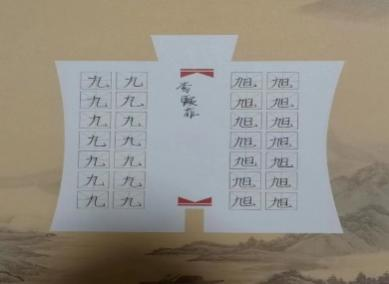 九 九
九 九
九 九
九 九
九 九
九 九
九 九
旭 旭
旭 旭
旭 旭
旭 旭
旭 旭
旭 旭
旭 旭